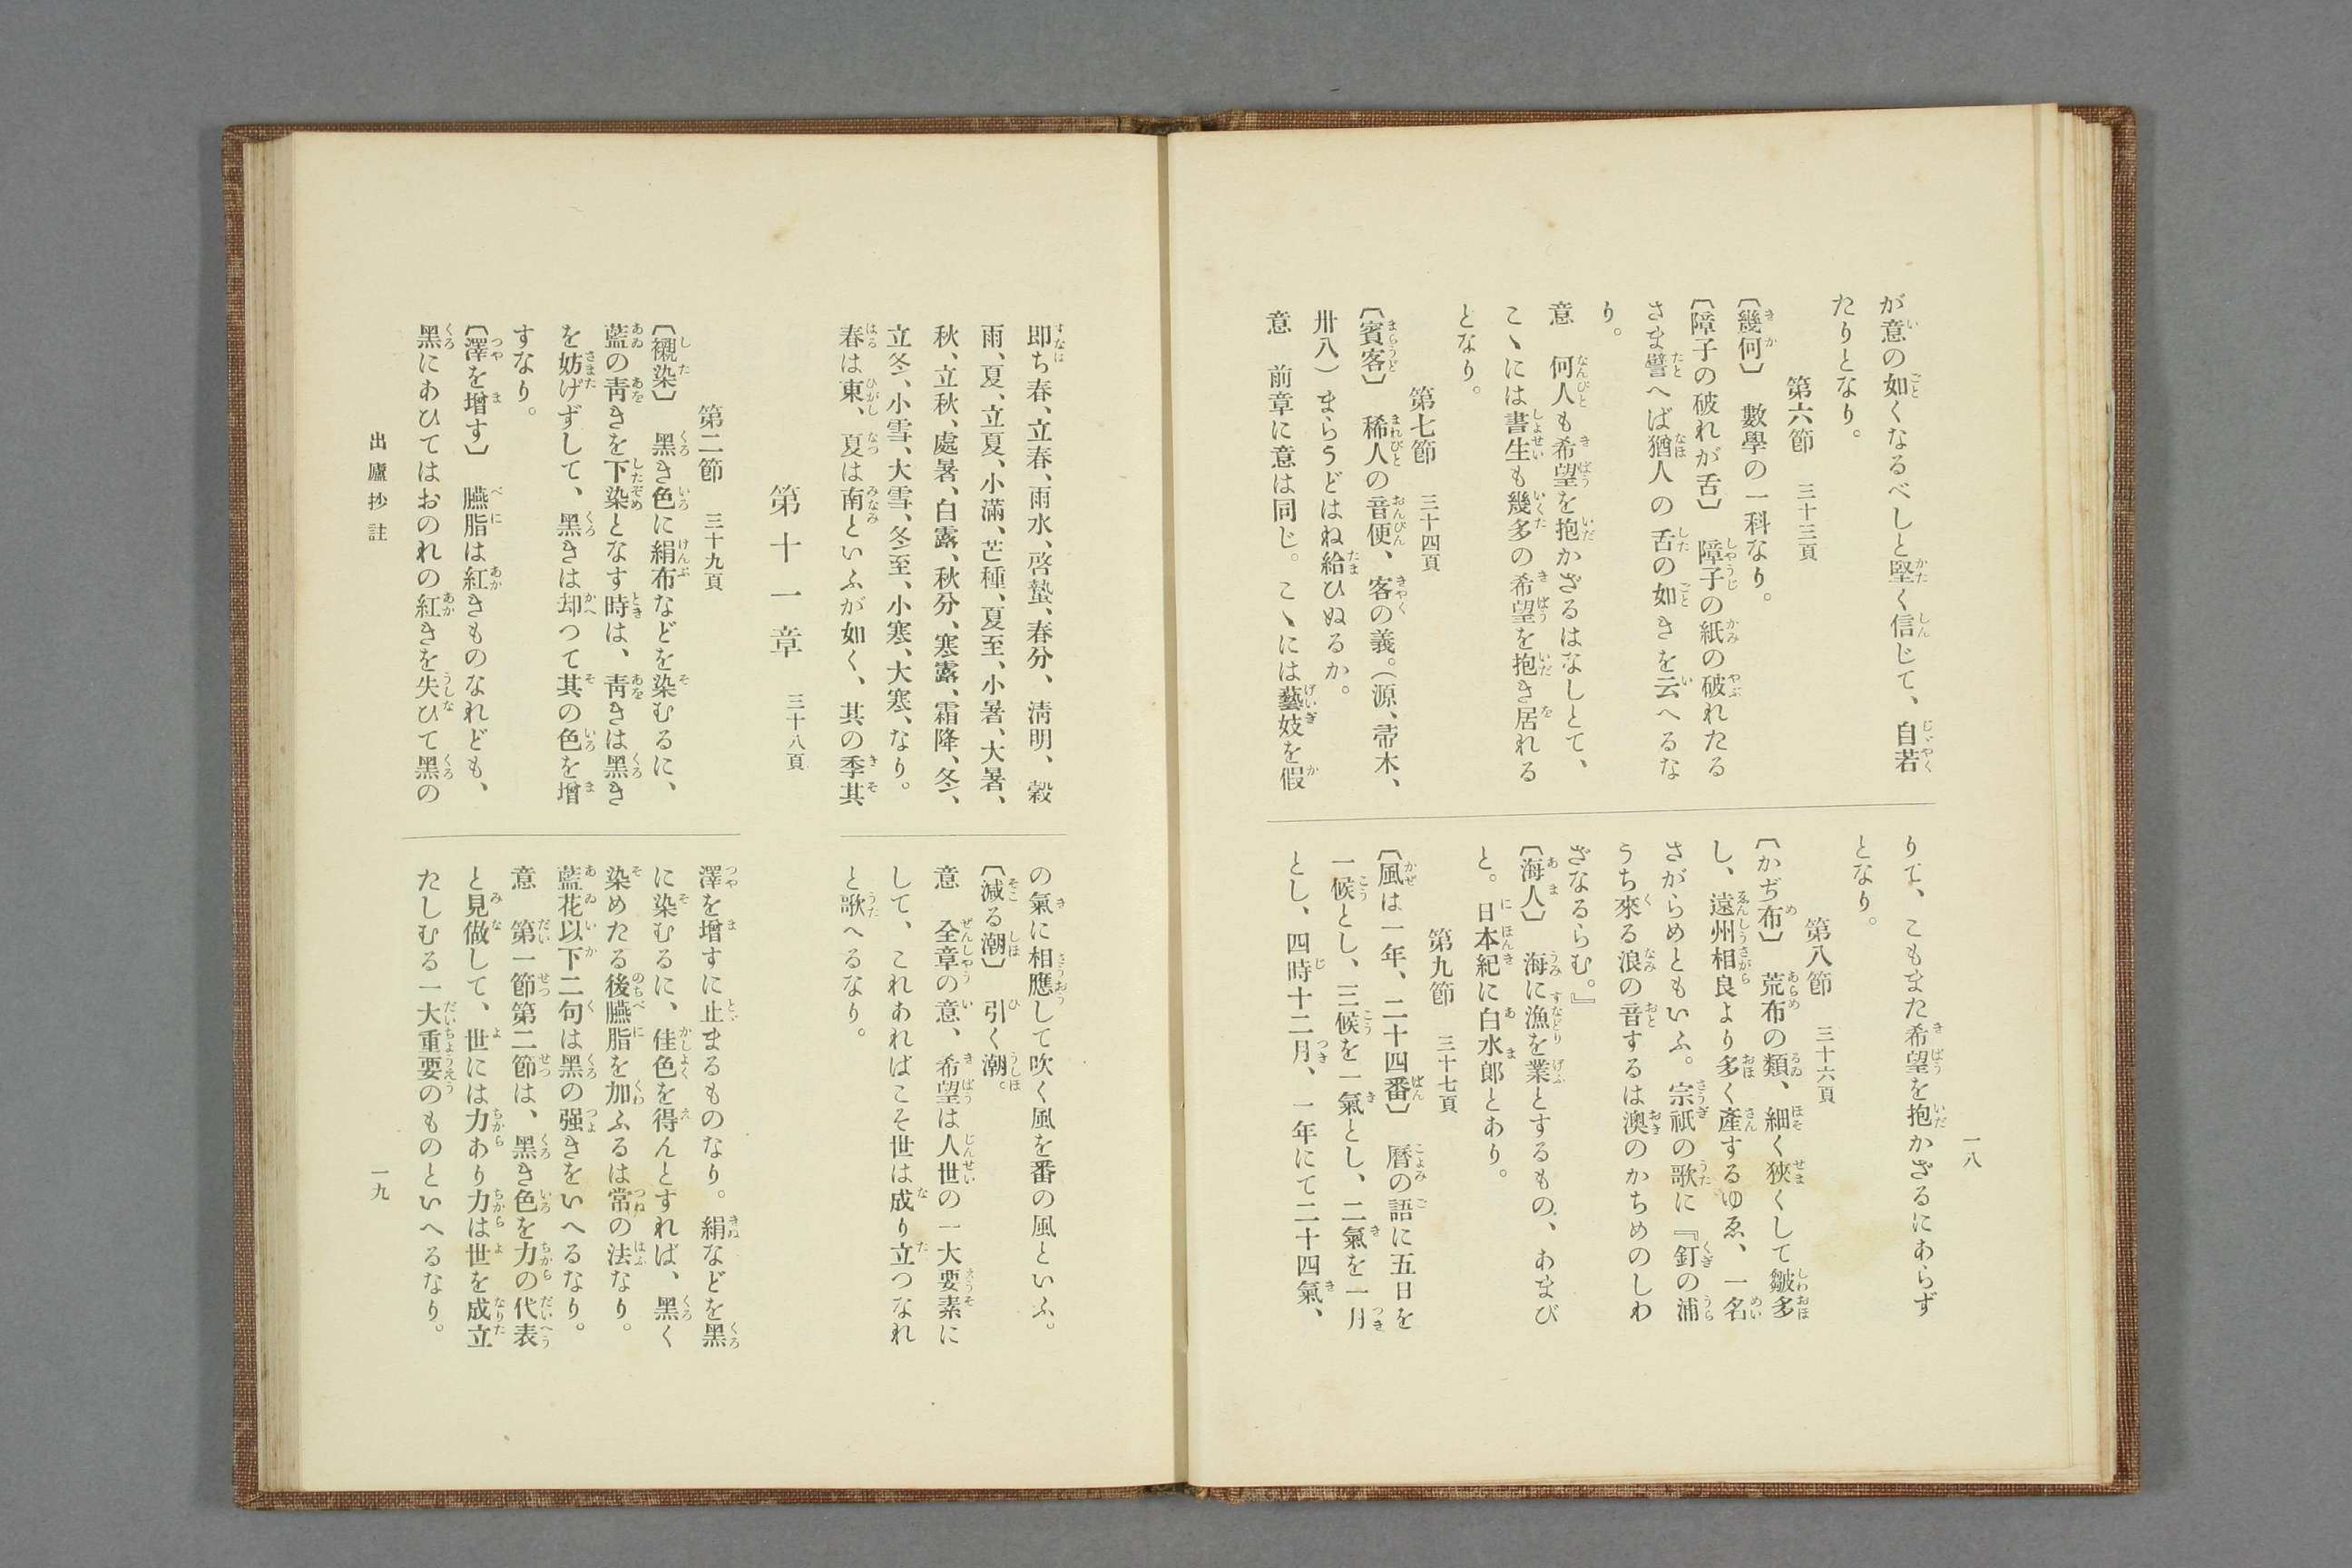 が意の如くなるべしと堅く信じて、自若
たりとなり。
第六節 三十三頁
〔幾何〕 數學の一科なり。
〔障子の破れが舌〕 障子の紙の破れたる
さま譬へば猶人の舌の如きを云へるな
り。
意 何人も希望を抱かざるはなしとて、
こヽには書生も幾多の希望を抱き居れる
となり。
第七節 三十四頁
〔賓客〕 稀人の音便、客の義。(源、帚木、
卅八)まらうどはね給ひぬるか。
意 前章に意は同じ。こヽには藝妓を假
りて、こもまた希望を抱かざるにあらず
となり。
第八節 三十六頁
〔かぢ布〕 荒布の類、細く狹くして皺多
し、遠州相良より多く產するゆゑ、一名
さがらめともいふ。宗祇の歌に『釘の浦
うち來る浪の音するは澳のかちめのしわ
ざなるらむ。』
〔海人〕 海に漁を業とするもの、あまび
と。日本紀に白水郎とあり。
第九節 三十七頁
〔風は一年、二十四番〕 曆の語に五日を
一候とし、三候を一氣とし、二氣を一月
とし、四時十二月、一年にて二十四氣、
一八
即ち春、立春、雨水、啓蟄、春分、淸明、穀
雨、夏、立夏、小滿、芒種、夏至、小暑、大暑、
秋、立秋、處暑、白露、秋分、寒露、霜降、冬、
立冬、小雪、大雪、冬至、小寒、大寒、なり。
春は東、夏は南といふが如く、其の季其
の氣に相應して吹く風を番の風といふ。
〔減る潮〕 引く潮。
意 全章の意、希望は人世の一大要素に
して、これあればこそ世は成り立つなれ
と歌へるなり。
第十一章 三十八頁
第二節 三十九頁
〔襯染〕 黑き色に絹布などを染むるに、
藍の靑きを下染となす時は、靑きは黑き
を妨げずして、黑きは却つて其の色を增
すなり。
〔澤を增す〕 臙脂は紅きものなれども、
黑にあひてはおのれの紅きを失ひて黑の
澤を增すに止まるものなり。絹などを黑
に染むるに、佳色を得んとすれば、黑く
染めたる後臙脂を加ふるは常の法なり。
藍花以下二句は黑の强きをいへるなり。
意 第一節第二節は、黑き色を力の代表
と見做して、世には力あり力は世を成立
たしむる一大重要のものといへるなり。
出廬抄註
一九